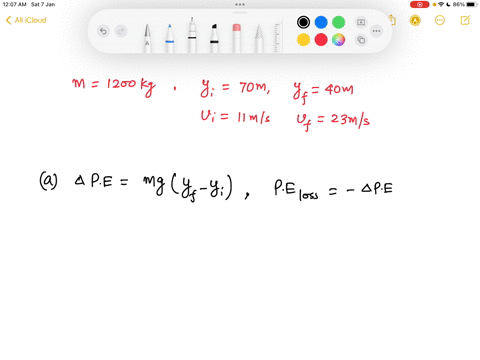 12:07 AM Sat 7 Jan
86%
All iCloud
m = 1200 kg , y_i = 70m, y_f = 40m
v_i = 11 m/s v_f = 23 m/s
(a) Δ P.E = mg (y_f - y_i) , P.E_loss = - Δ P.E